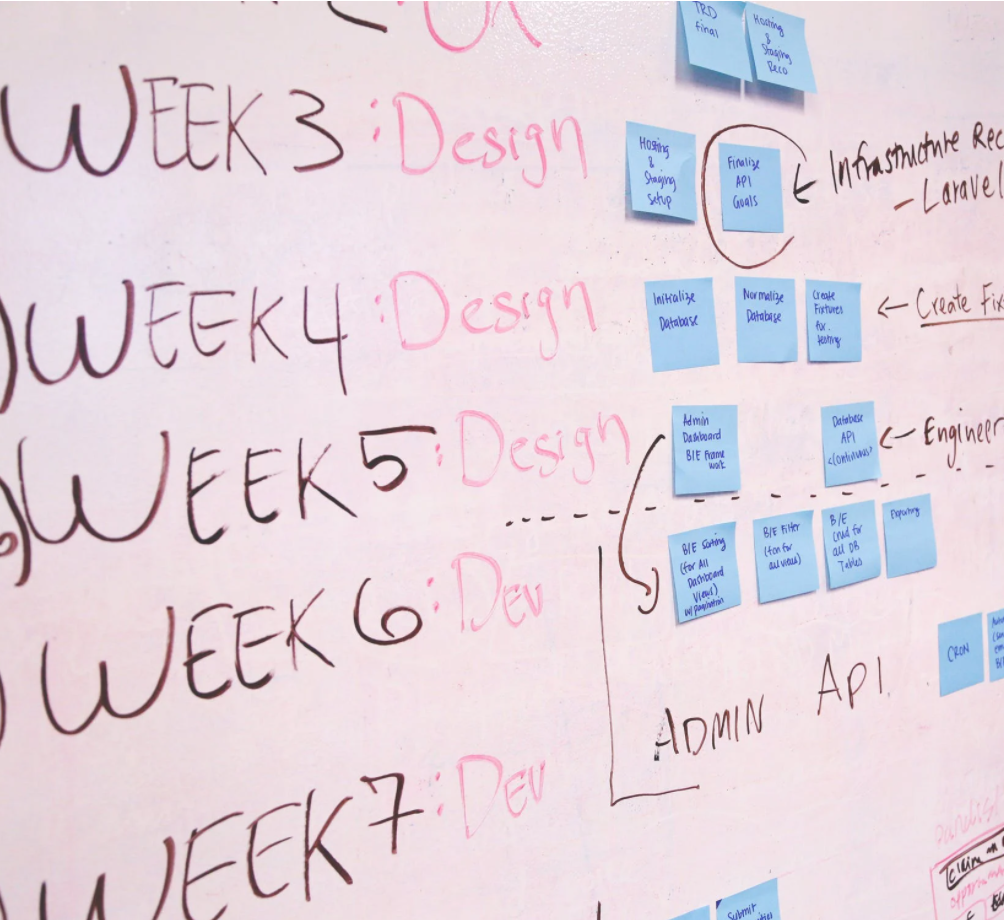 TRD
final
Hosting
&
Staging
Reco
WEEK 3 : Design
Hosting
&
Staging
Setup
Finalize
API
Goals
← Infrastructure Rec
- Laravel
WEEK 4 : Design
Initialize
Database
Normalize
Database
Create
Fixtures
for
testing
← Create Fix
WEEK 5 : Design
Admin
Dashboard
B/E Frame
work
Database
API
<continuous>
← Engineer
WEEK 6 : Dev
B/E Sorting
(for All
Dashboard
Views)
w/ pagination
B/E Filter
(for
all views)
B/E
crud for
all DB
Tables
Exporting
CRON
ADMIN API
WEEK 7 : Dev
Submit